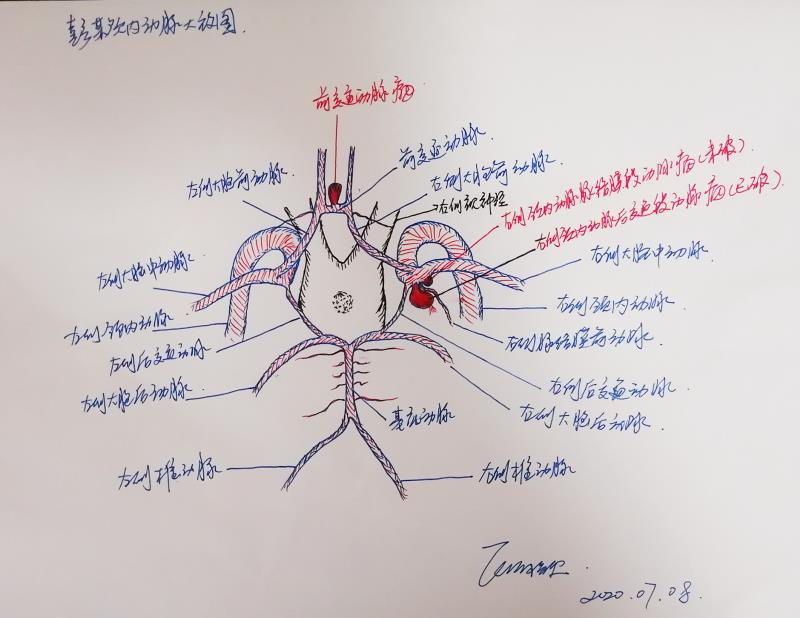 彭某颅内动脉大放图.
前交通动脉瘤
前交通动脉
左侧大脑前动脉
右侧大脑前动脉
右侧视神经
右侧颈内动脉脉络膜段动脉瘤(未破).
右侧颈内动脉后交通段动脉瘤(已破).
左侧大脑中动脉
右侧大脑中动脉.
左侧颈内动脉
右侧颈内动脉.
左侧后交通动脉
右侧脉络膜前动脉
左侧大脑后动脉
右侧后交通动脉.
基底动脉
右侧大脑后动脉.
左侧椎动脉
右侧椎动脉
2020.07.08.